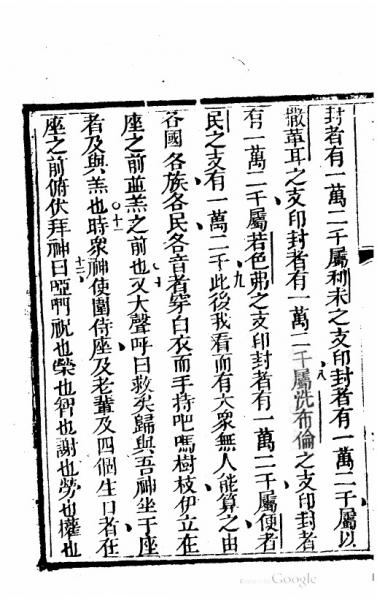 封者有一萬二千屬利未之支印封者有一萬二千屬以
撒革耳之支印封者有一萬二千八屬洗布倫之支印封者
有一萬二千屬若色弗之支印封者有一萬二千屬便者
民之支有一萬二千九此後我看而有大衆無人能算之由
各國各族各民各音者穿白衣而手持吧嗎樹枝伊立在
座之前並羔之前也十又大聲呼曰救矣歸與吾神坐于座
者及與羔也十一時衆神使圍侍座及老輩及四個生口者在
座之前俯伏拜神十二曰啞門祝也榮也智也謝也勞也權也
Google